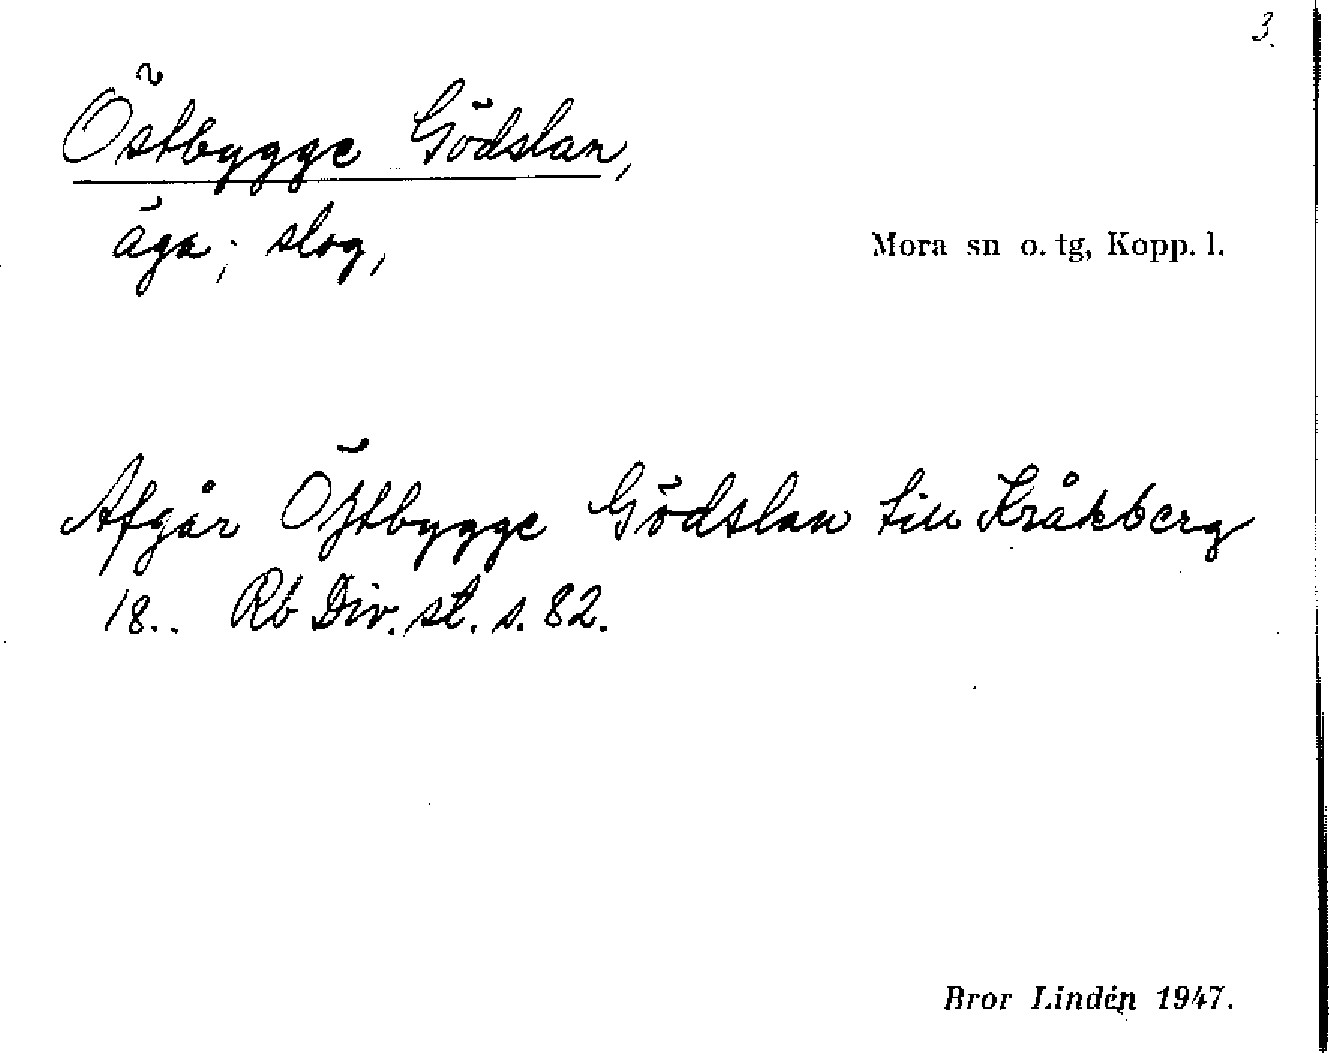 3.
Östbygge Gödslan,
äga; slog,
Mora sn o. tg, Kopp. l.
Afgår Östbygge Gödslan till Kråkberg
18.. Rb Div. st. s. 82.
Bror Lindén 1947.